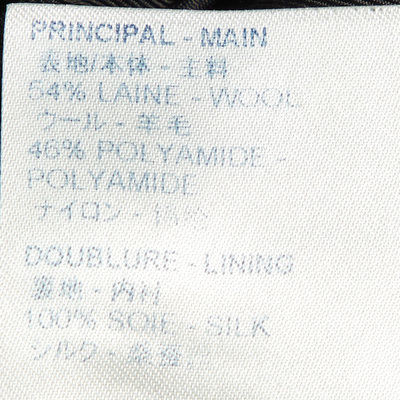 PRINCIPAL - MAIN
表地/本体 - 主料
54% LAINE - WOOL
ウール - 羊毛
46% POLYAMIDE -
POLYAMIDE
ナイロン -
DOUBLURE - LINING
裏地 - 内衬
100% SOIE - SILK
シルク -